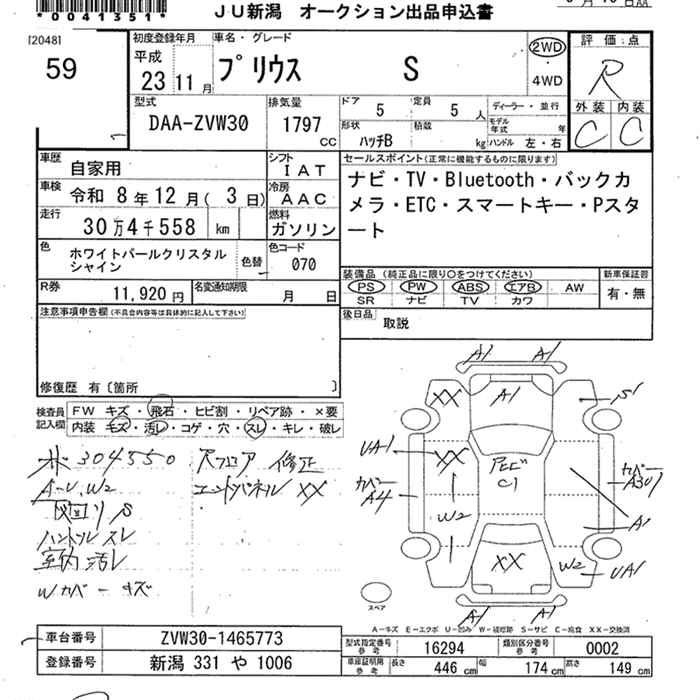 *0041351*
JU新潟 オークション出品申込書
[2048]
59
初度登録年月 車名・グレード
平成
23 11 月
プリウス S
2WD
4WD
評価点
R
外装 内装
C C
型式
DAA-ZVW30
排気量
1797
CC
ドア 5
定員 5 人
形状
ハッチB
積載
kg
ディーラー・並行
モデル
年式 年
ハンドル 左・右
車歴
自家用
シフト
IAT
車検
令和 8年 12月( 3日)
冷房
AAC
走行
30万4千558 km
燃料
ガソリン
色
ホワイトパールクリスタル
シャイン
色替
色コード
070
R券
11,920 円
名変通知期限
月 日
セールスポイント(正常に機能するものに限ります)
ナビ・TV・Bluetooth・バックカ
メラ・ETC・スマートキー・Pスタ
ート
装備品(純正品に限り○をつけてください)
PS PW ABS エアB AW
SR ナビ TV カワ
新車保証書
有・無
後日品
取説
注意事項申告欄(不具合内容等は具体的に記入して下さい)
修復歴 有〔箇所 〕
検査員
記入欄
FW キズ・飛石・ヒビ割・リペア跡・×要
内装 キズ・汚レ・コゲ・穴・スレ・キレ・破レ
304550
A-U、W2
ハンドルスレ
室内汚レ
Wカバーキズ
Rフロア 修正
エンドパネル XX
A1 A1
XX
A1
S1
UA1
XX
カバー
A4
W2
C1
カバー
A301
A1
XX
W2
UA1
A1 A1
スペア
A-キズ E-エクボ U-凹み W-補修跡 S-サビ C-腐食 XX-交換済
車台番号
ZVW30-1465773
登録番号
新潟 331 や 1006
型式指定番号
参考
16294
類別区分番号
参考
0002
車庫証明用
参考
長さ 446 cm
幅 174 cm
高さ 149 cm